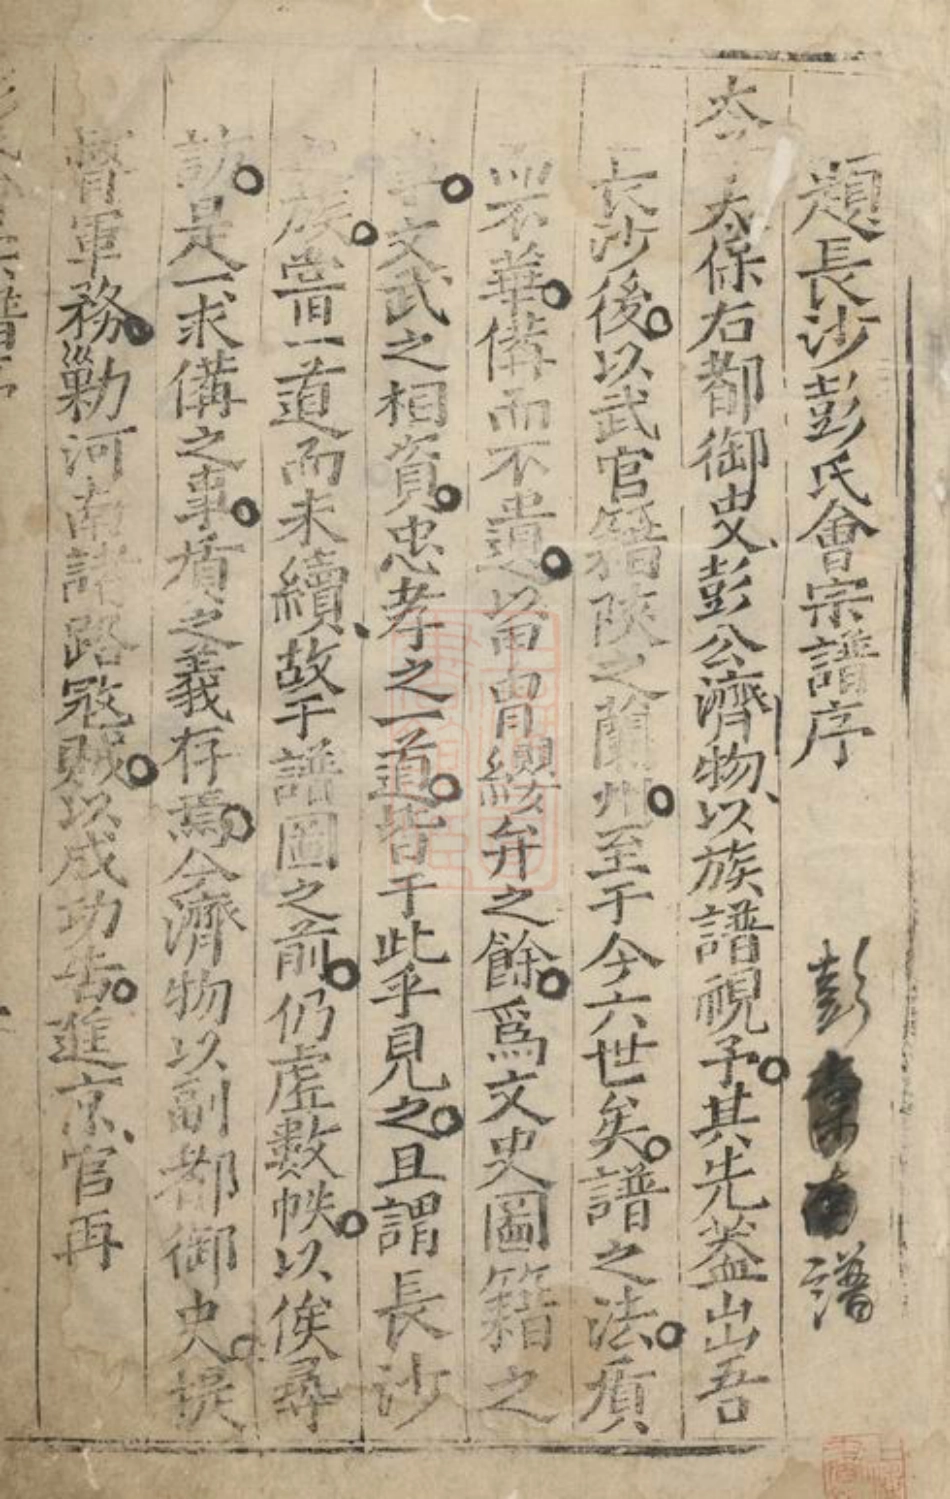 題長沙彭氏會宗譜序
彭 譜
太保右都御史彭公濟物以族譜視予其先蓋出吾
長沙後以武官籍陝之蘭州至于今六世矣譜之法質
而不華備而不遺以胄纓弁之餘爲文史圖籍之
事文武之相資忠孝之一道皆于此乎見之且謂長沙
族當一道而未續故于譜圖之前仍虛數帙以俟尋
訪是一求備之事質之義存焉公濟物以副都御史提
督軍務勦河南諸路冦賊以成功告進京官再